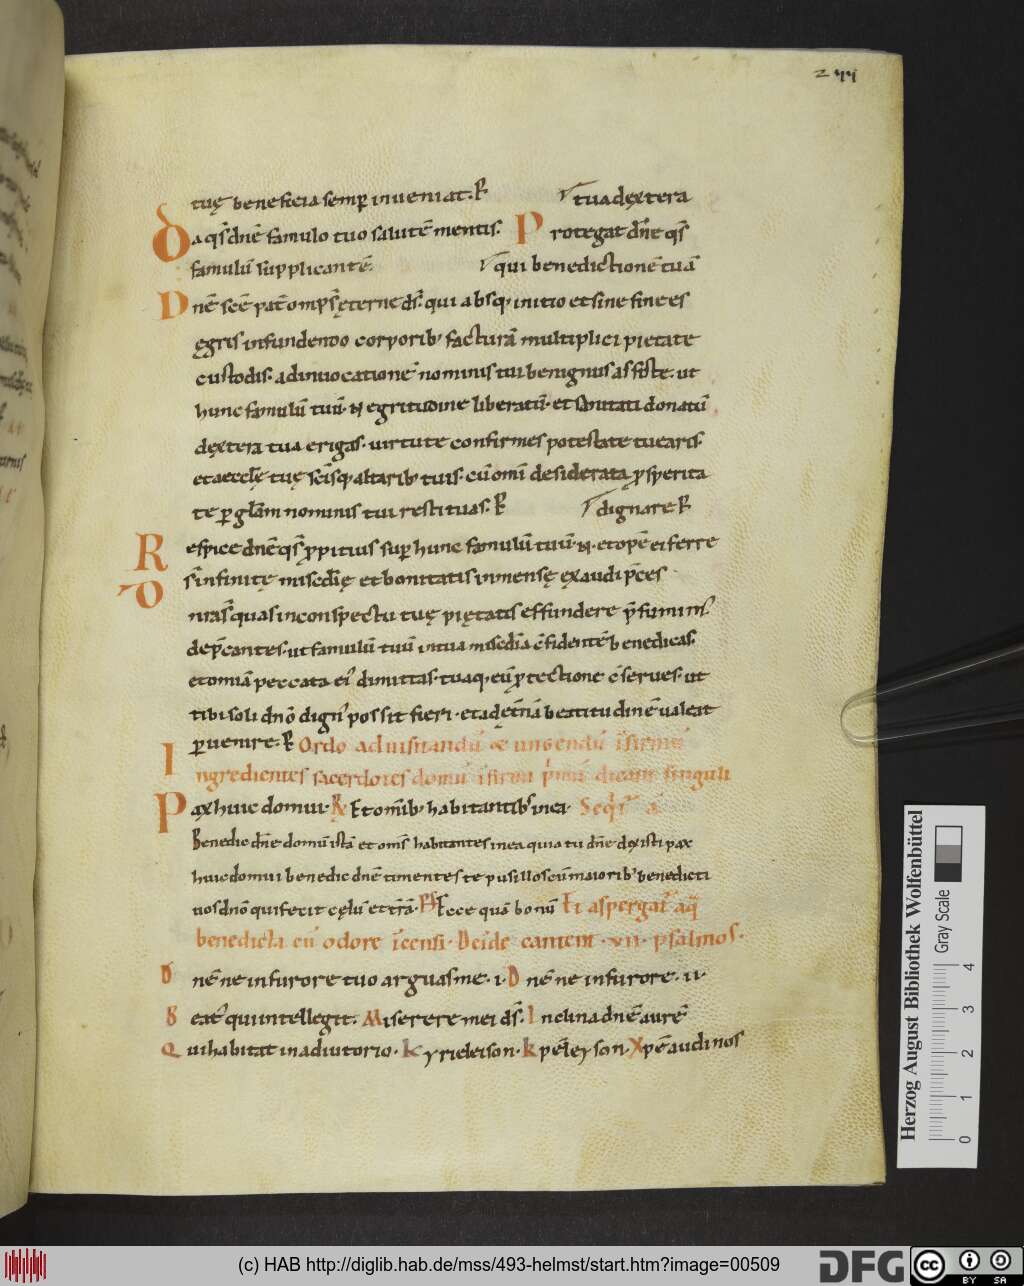 244
tuę beneficia semp inveniat. R̃ tua dextera
Da qs̄ dnē famulo tuo salutē mentis. Protegat dn̄e qs̄
famulū supplicantē. qui benedictionē tuā
Dnē scē pat̄ omps̄ ęterne ds̄. qui absq; initio et sine fine es
ęgris infundendo corporib; facturā multiplici pietate
custodis. ad invocationē nominis tui benignus assiste. ut
hunc famulū tuū. N egritudine liberatū. et sanitati donatū
dextera tua erigas. virtute confirmes potestate tuearis.
et aecclę tuę scīsq; altarib; tuis. cū omī desiderata psperita
te p glam nominis tui restituas. R̃ dignare R̃
Respice dnē qs̄ ppitius sup hunc famulū tuū. N. et opē ei ferre
Ds̄ infinitę miscdię et bonitatis inmensę exaudi pces
nrās quas in conspectu tuę pietatis effundere
depcantes. ut famulū tuū in tua misedia cfidentē benedicas.
et omia peccata ei dimittas. tuaq; eū ptectione cserves. ut
tibi soli dnō dign' possit fieri. et ad etnā beatitudinē valeat
pvenire. R̃ Ordo ad visitandū & ungendū ifirmū
Ingredientes sacerdotes domū ifirmi pmū dicant singuli
Pax huic domui. R̃ Et omib; habitantib; in ea. Seqr̄ a
Benedic dn̄e domū istā et oms̄ habitantes in ea quia tu dn̄e dixisti pax
huic domui benedic dnē timentes te pusillos cū maiorib; benedicti
vos dnō qui fecit cęlū et trā. Ps Ecce quā bonū Et aspergat aq̄
benedicta cū odore icensi. Deide cantent. vii. psalmos.
Dnē ne in furore tuo arguas me. i. Dnē ne in furore. ii
Beati qui intellegit. Miserere mei ds̄. Inclina dnē aurē
Qui habitat in adiutorio. Kyrieleison. kpēleyson. Xpē audi nos
Herzog August Bibliothek Wolfenbüttel
Gray Scale
0 1 2 3 4
(c) HAB http://diglib.hab.de/mss/493-helmst/start.htm?image=00509
DFG
cc BY SA